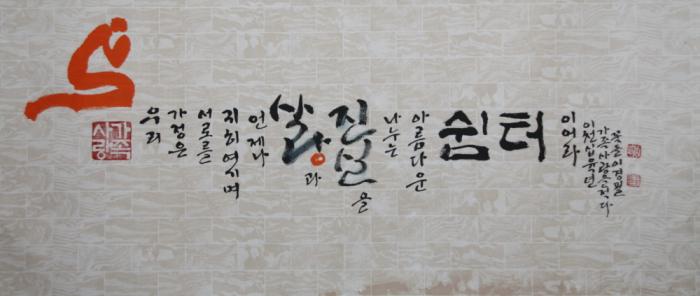 우리
가정은
서로를
지희여기며
언제나
사랑과
진실을
나누는
아름다운
쉼터
이어라
이천십육년
가족사랑을 쓰다
가족
사랑